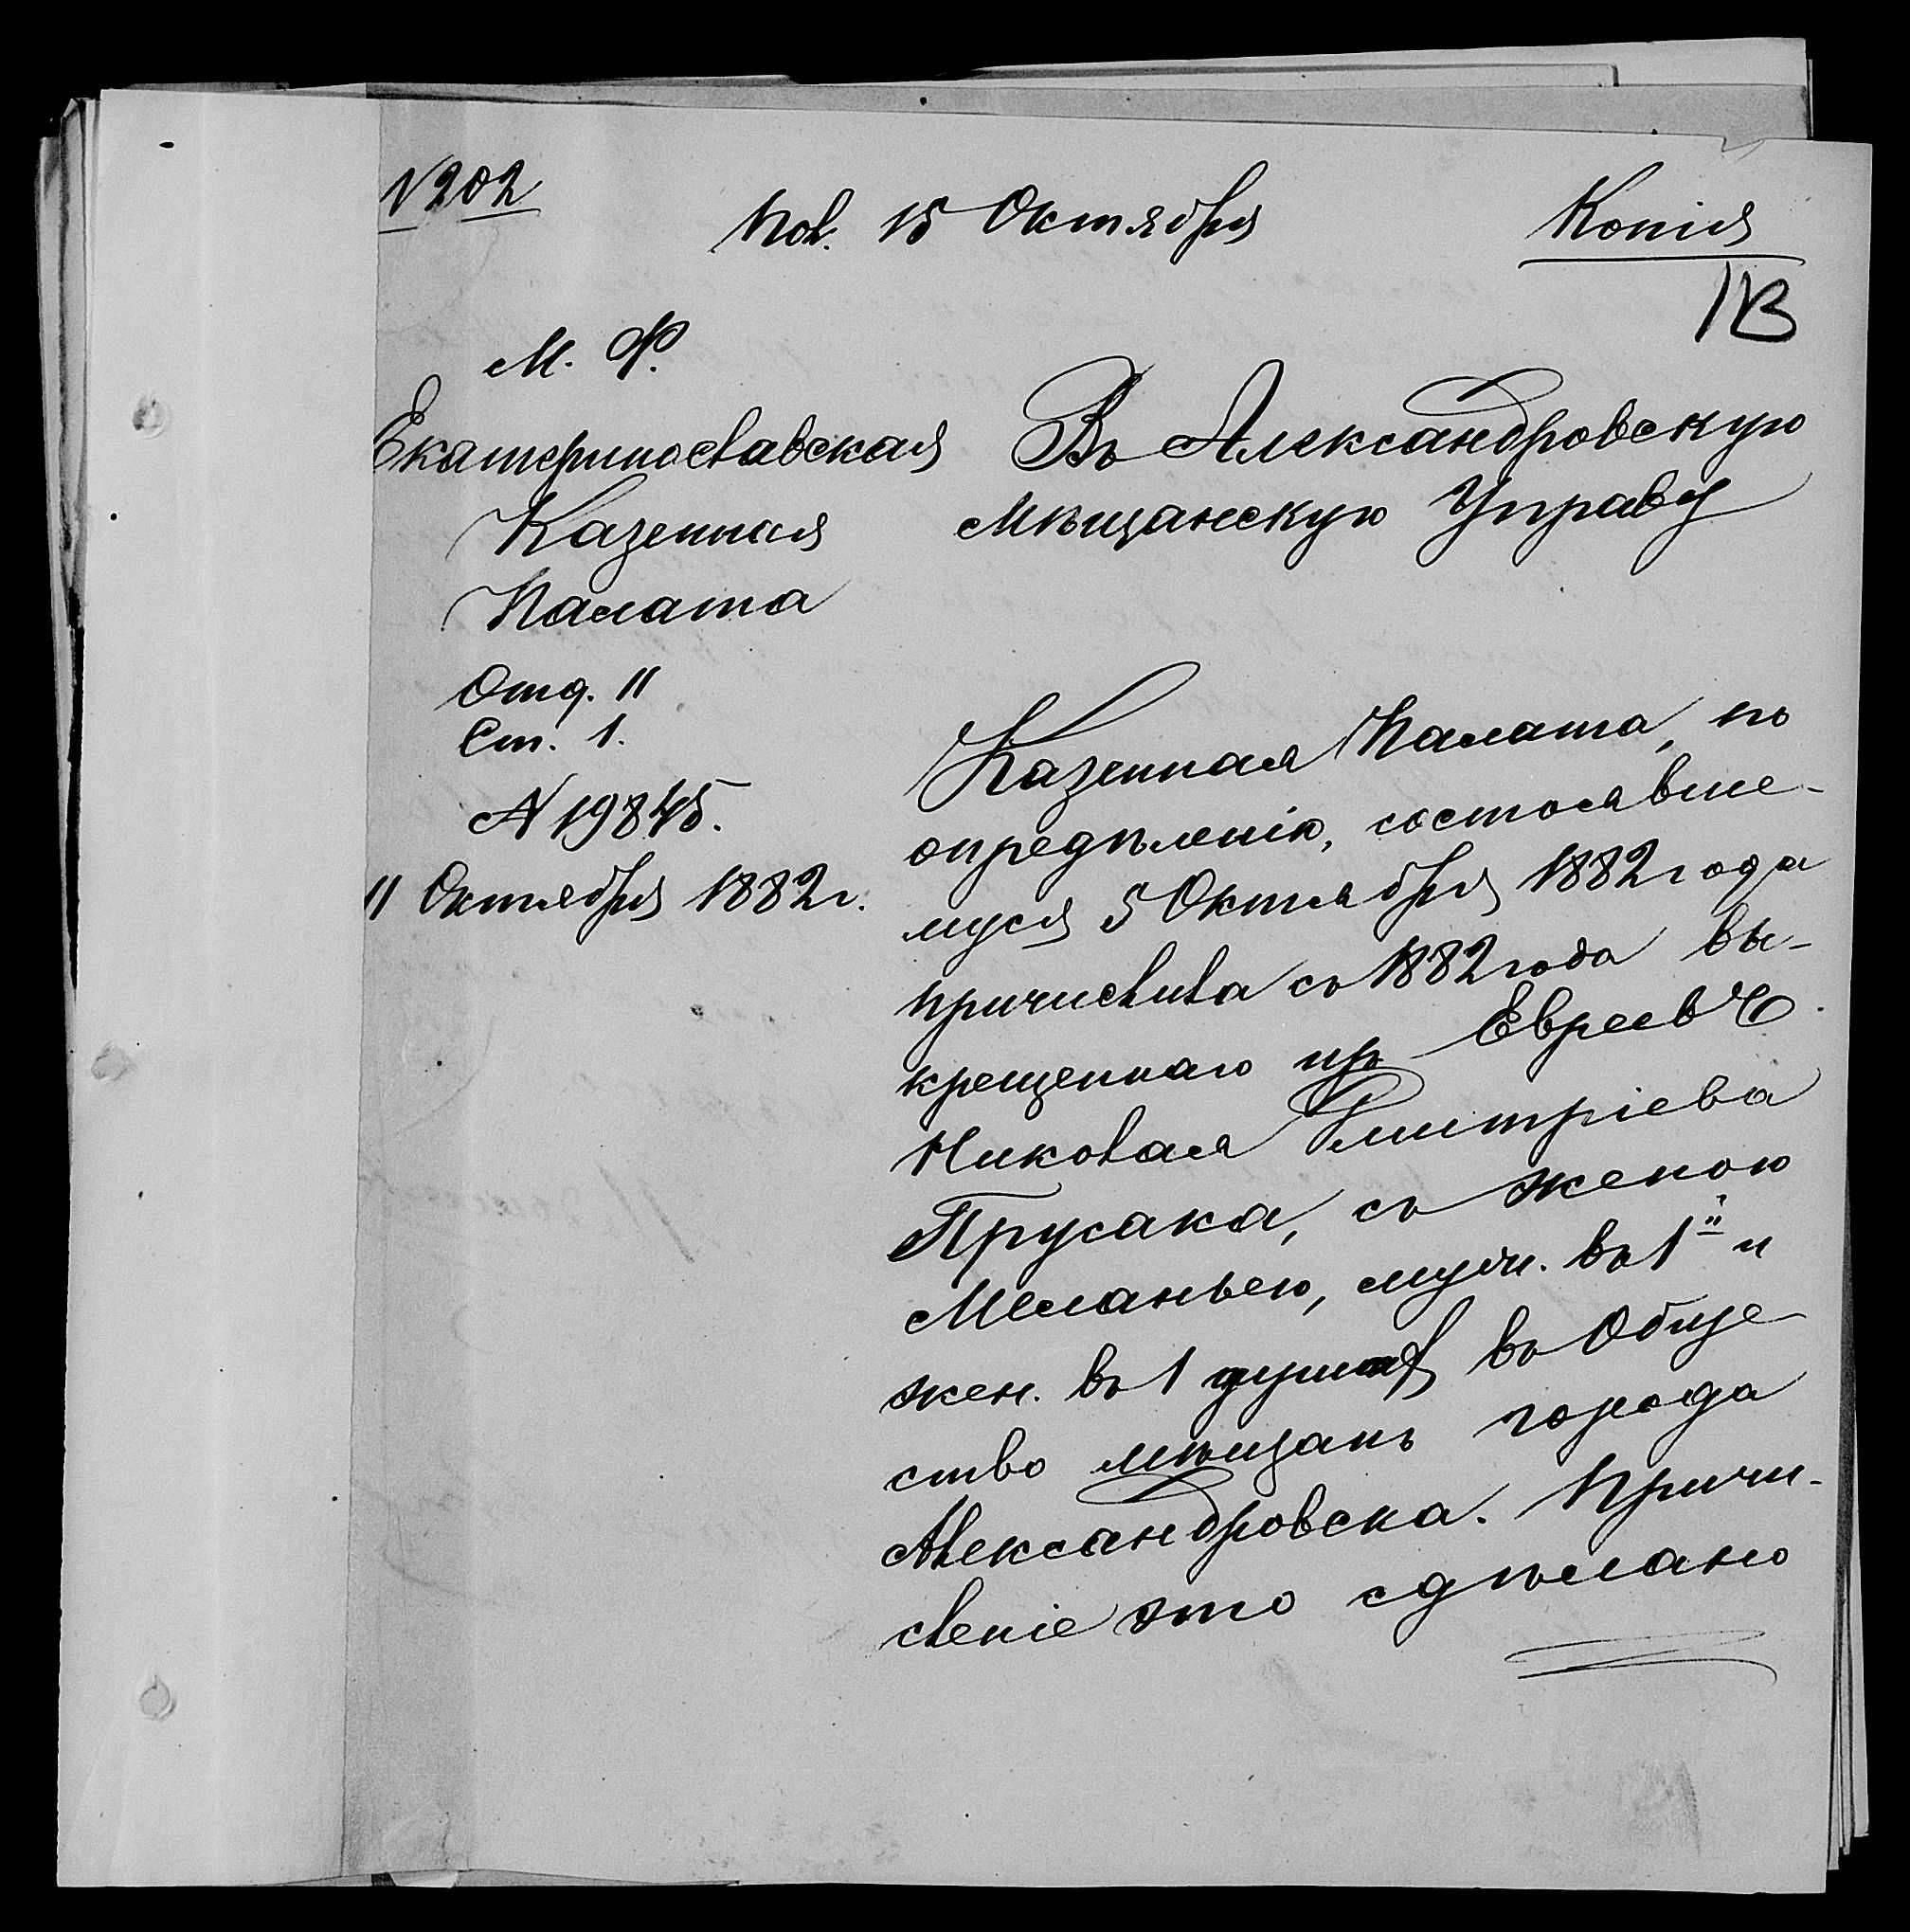 № 202
Пол. 15 Октября
Копія
13
М. Ф.
Екатеринославская
Казенная
Палата
Отд. II
Ст. 1.
№ 19845.
11 Октября 1882 г.
Въ Александровскую
Мѣщанскую Управу
Казенная Палата, по
опредѣленію, состоявше-
муся 5 Октября 1882 года
причислила съ 1882 года вы-
крещеннаго изъ Евреевъ
Николая Дмитріева
Прусака, съ женою
Меланьею, муж. въ 1й и
жен. въ 1 душах въ Обще
ство мѣщанъ города
Александровска. Причи-
сленіе это сдѣлано